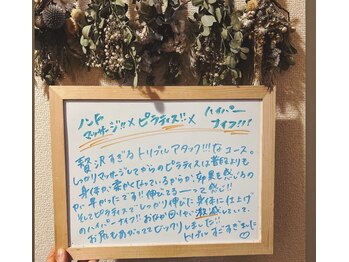 ハンド
マッサージ!!×ピラティス!!×ハイパーナイフ!!!
贅沢すぎるトリプルアタック!!!なコース。
しっかりマッサージしてからのピラティスは普段よりも
身体が柔かくなっているからか、効果も感じるの
が早かったです!!伸びてるーーって感じ!!
そしてピラティスでしっかり伸びた身体に仕上げ
のハイパーナイフ!!おなかが1回で激減していて、
お尻もあがっててビックリしました!!
トリプルすごすぎました♡